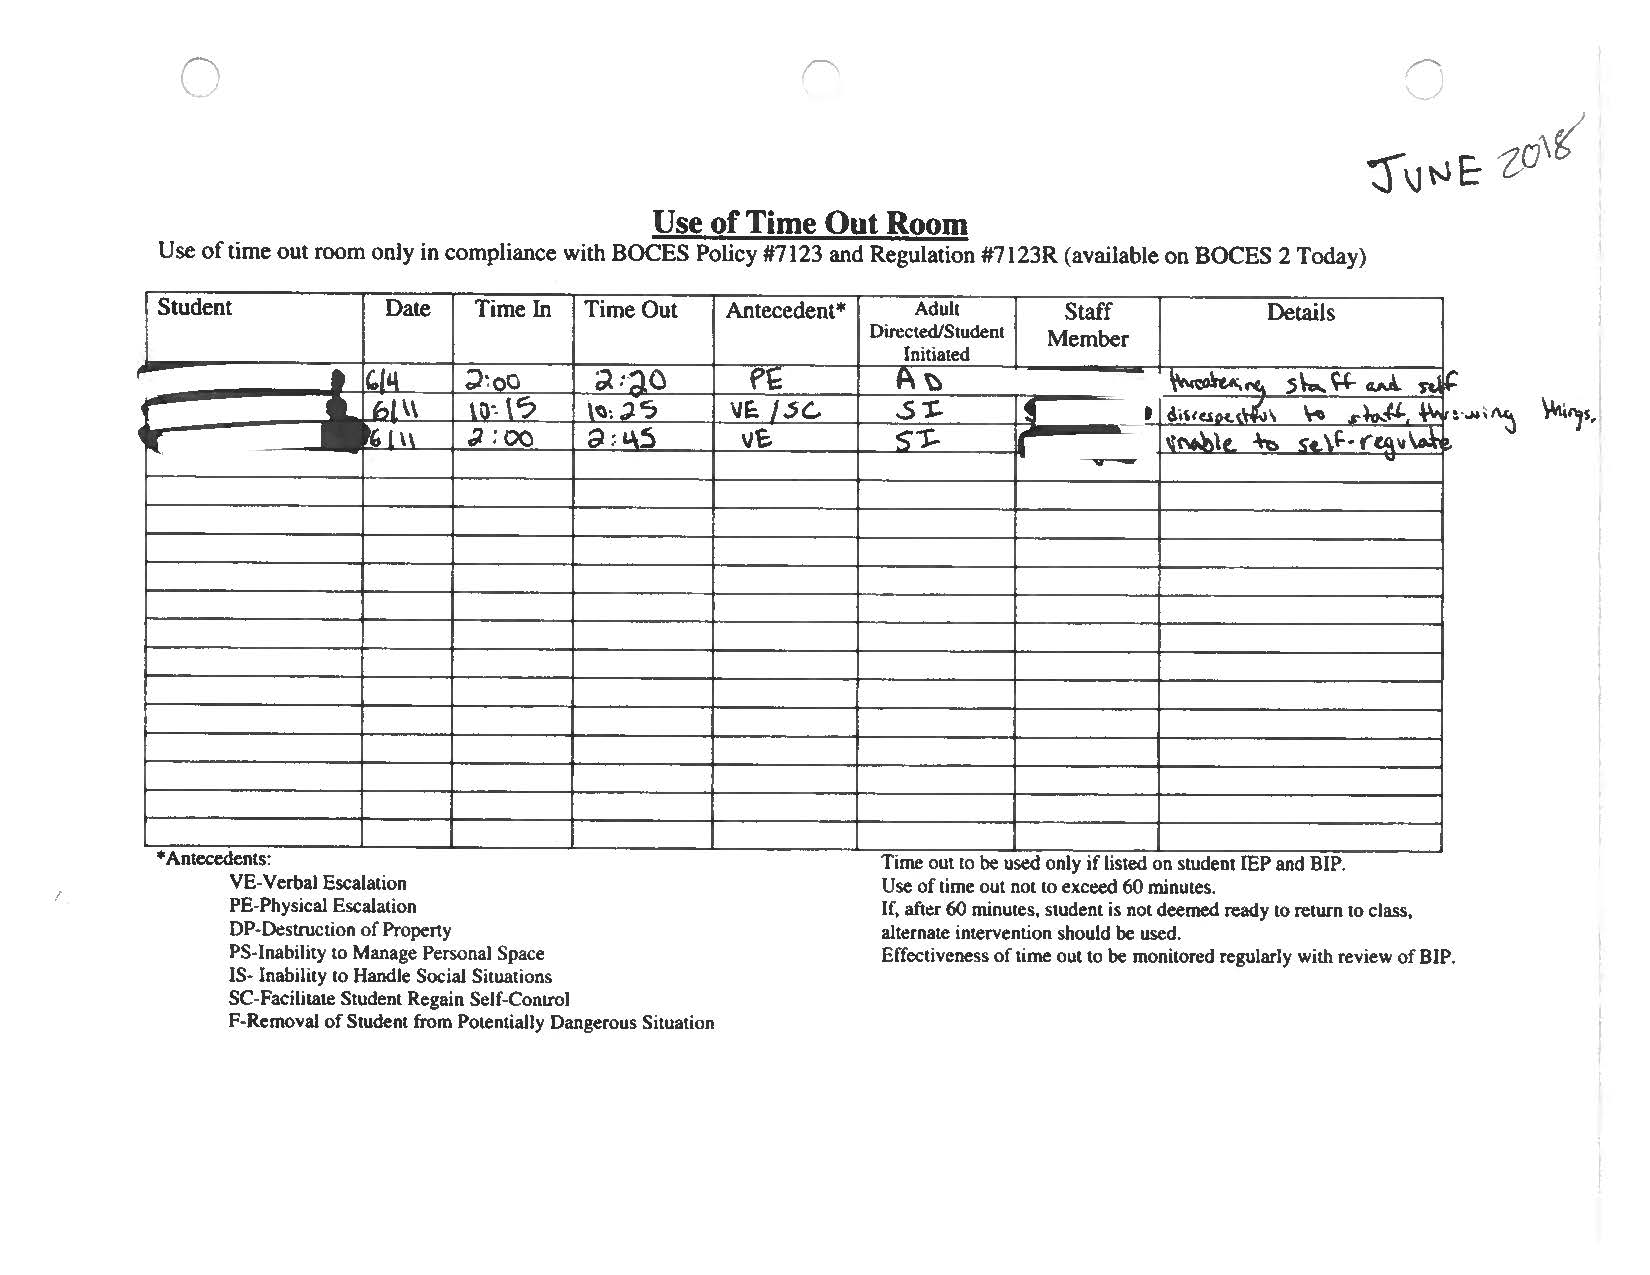 JUNE 2018
Use of Time Out Room
Use of time out room only in compliance with BOCES Policy #7123 and Regulation #7123R (available on BOCES 2 Today)
Student Date Time In Time Out Antecedent* Adult Directed/Student Initiated Staff Member Details
6/4 2:00 2:20 PE AD threatening staff and self
6/11 10:15 10:25 VE/SC SI disrespectful to staff, throwing things.
6/11 2:00 2:45 VE SI unable to self-regulate
*Antecedents:
VE-Verbal Escalation
PE-Physical Escalation
DP-Destruction of Property
PS-Inability to Manage Personal Space
IS- Inability to Handle Social Situations
SC-Facilitate Student Regain Self-Control
F-Removal of Student from Potentially Dangerous Situation
Time out to be used only if listed on student IEP and BIP.
Use of time out not to exceed 60 minutes.
If, after 60 minutes, student is not deemed ready to return to class,
alternate intervention should be used.
Effectiveness of time out to be monitored regularly with review of BIP.